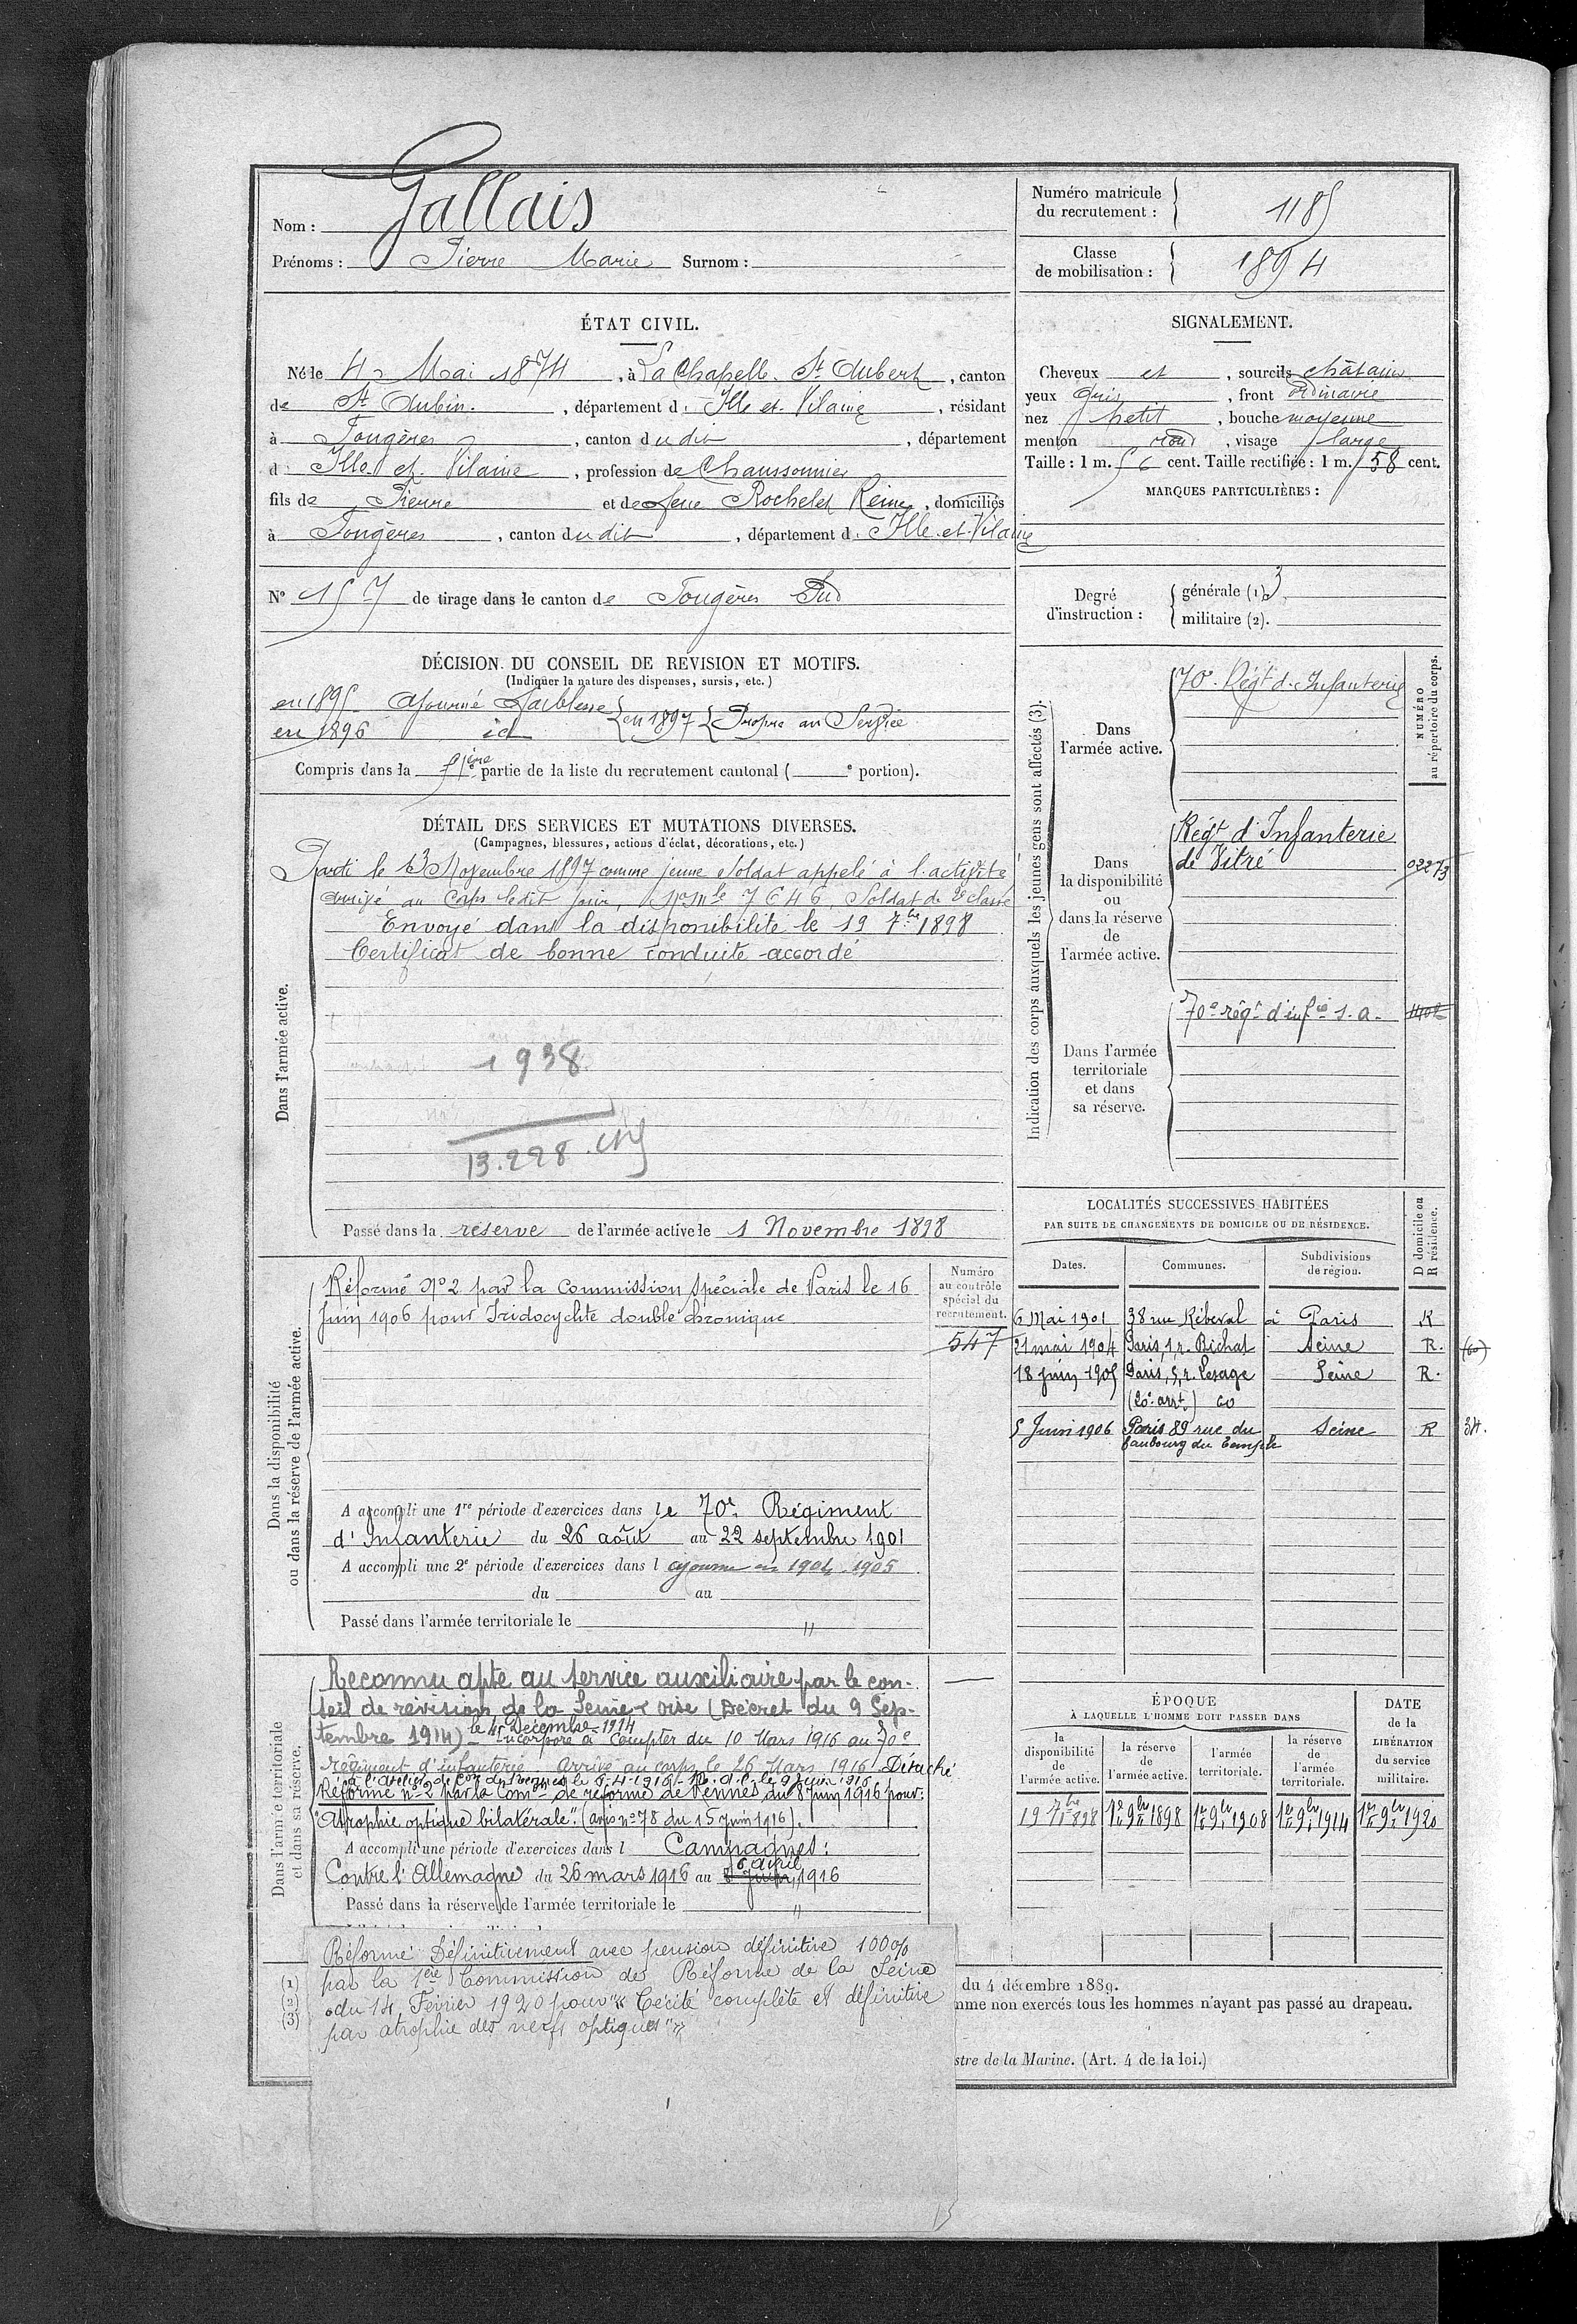 Nom : Gallais
Prénoms : Pierre Marie Surnom :
Numéro matricule du recrutement : 1185
Classe de mobilisation : 1894
ÉTAT CIVIL.
Né le 4 Mai 1874, à La Chapelle St Aubert, canton
de St Aubin, département d. Ille et Vilaine, résidant
à Fougères, canton dudit, département
d. Ille et Vilaine, profession de Chaussonnier
fils de Pierre et de feue Rochelet Reine, domiciliés
à Fougères, canton dudit, département d. Ille et Vilaine
N° 157 de tirage dans le canton de Fougères Sud
SIGNALEMENT.
Cheveux et, sourcils châtains
yeux gris, front ordinaire
nez petit, bouche moyenne
menton rond, visage large
Taille : 1 m. 56 cent. Taille rectifiée : 1 m. 58 cent.
MARQUES PARTICULIÈRES :
Degré d'instruction :
générale (1). 3
militaire (2).
DÉCISION DU CONSEIL DE REVISION ET MOTIFS.
(Indiquer la nature des dispenses, sursis, etc.)
en 1895 Ajourné Faiblesse
en 1896 id
en 1897 Propre au Service
Compris dans la 1ère partie de la liste du recrutement cantonal ( e portion).
DÉTAIL DES SERVICES ET MUTATIONS DIVERSES.
(Campagnes, blessures, actions d'éclat, décorations, etc.)
Dans l'armée active.
Parti le 13 Novembre 1897 comme jeune soldat appelé à l'activité
arrivé au Corps ledit jour, No Mle 7646, Soldat de 2e classe
Envoyé dans la disponibilité le 19 7bre 1898
Certificat de bonne conduite accordé
1938
13.228.
Passé dans la réserve de l'armée active le 1 Novembre 1898
Indication des corps auxquels les jeunes gens sont affectés (3).
NUMÉRO au répertoire du corps.
Dans l'armée active.
70e Régt d'Infanterie
Dans la disponibilité ou dans la réserve de l'armée active.
Régt d'Infanterie
de Vitré
02273
Dans l'armée territoriale et dans sa réserve.
70e régt d'infie s.a.
LOCALITÉS SUCCESSIVES HABITÉES
PAR SUITE DE CHANGEMENTS DE DOMICILE OU DE RÉSIDENCE.
Dates. Communes. Subdivisions de région. D domicile ou R résidence.
6 Mai 1901 38 rue Rébeval à Paris R
21 mai 1904 Paris, 1, r. Bichat Seine R. (60)
18 juin 1905 Paris, 5, r. Lesage Seine R.
(20e arrt) 60
5 Juin 1906 Paris 89 rue du Seine R 34.
faubourg du Temple
Dans la disponibilité ou dans la réserve de l'armée active.
Numéro au contrôle spécial du recrutement.
547
Réformé No 2 par la Commission spéciale de Paris le 16
Juin 1906 pour Iridocyclite double chronique
A accompli une 1re période d'exercices dans le 70e Régiment
d'Infanterie du 26 août au 22 septembre 1901
A accompli une 2e période d'exercices dans l ajourné en 1904-1905
du au
Passé dans l'armée territoriale le "
Dans l'armée territoriale et dans sa réserve.
Reconnu apte au service auxiliaire par le con-
seil de révision de la Seine & Oise (Décret du 9 Sep-
tembre 1914) le 15 Décembre 1914
Incorporé à compter du 10 Mars 1916 au 70e
régiment d'infanterie Arrivé au corps le 26 Mars 1916 Détaché
Réformé no 2 par la Comon de réforme de Rennes du 8 juin 1916 pour :
"Atrophie optique bilatérale". (avis no 78 du 15 juin 1916).
A accompli une période d'exercices dans l Campagnes :
Contre l'Allemagne du 26 mars 1916 au 6 avril 1916
Passé dans la réserve de l'armée territoriale le "
ÉPOQUE
À LAQUELLE L'HOMME DOIT PASSER DANS
la disponibilité de l'armée active. la réserve de l'armée active. l'armée territoriale. la réserve de l'armée territoriale.
DATE de la LIBÉRATION du service militaire.
19 7bre 1898 1er 9bre 1898 1er 9bre 1908 1er 9bre 1914 1er 9bre 1920
Réformé Définitivement avec pension définitive 100%
par la 1ère Commission de Réforme de la Seine
du 14 Février 1920 pour "Cécité complète et définitive
par atrophie des nerfs optiques"
(1)
(2)
(3)
du 4 décembre 1889.
mme non exercés tous les hommes n'ayant pas passé au drapeau.
stre de la Marine. (Art. 4 de la loi.)